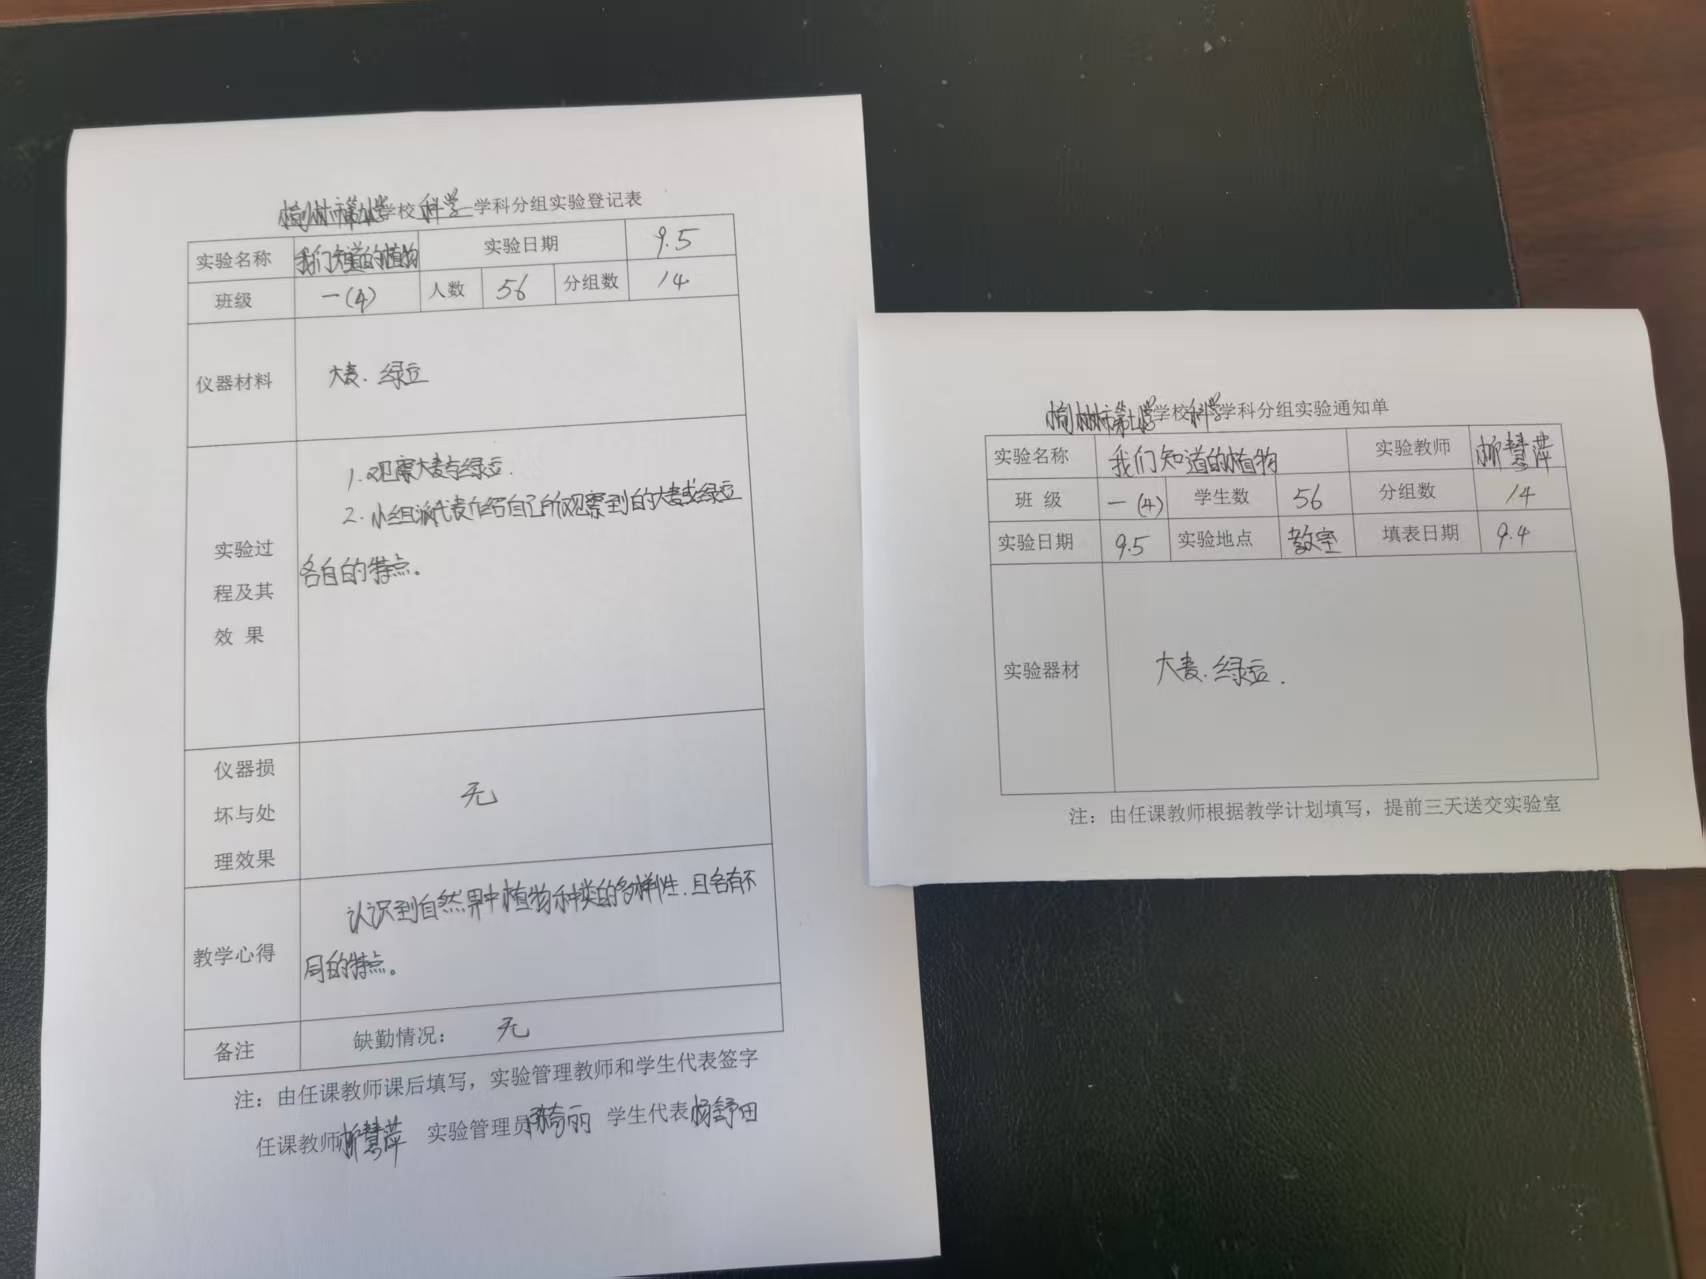 榆林市第九小学学校科学学科分组实验登记表
实验名称 我们知道的植物 实验日期 9.5
班级 一(4) 人数 56 分组数 14
仪器材料 大麦、绿豆
1.观察大麦与绿豆.
2.小组派代表介绍自己所观察到的大麦或绿豆
各自的特点。
实验过
程及其
效 果
仪器损
坏与处
理效果
无
认识到自然界中植物种类的多样性.且各有不
同的特点。
教学心得
备注 缺勤情况: 无
注:由任课教师课后填写,实验管理教师和学生代表签字
任课教师柳慧萍 实验管理员 学生代表杨舒田
学校科学学科分组实验通知单
实验名称 我们知道的植物 实验教师 柳慧萍
班 级 一(4) 学生数 56 分组数 14
实验日期 9.5 实验地点 教室 填表日期 9.4
实验器材 大麦.绿豆.
注:由任课教师根据教学计划填写,提前三天送交实验室